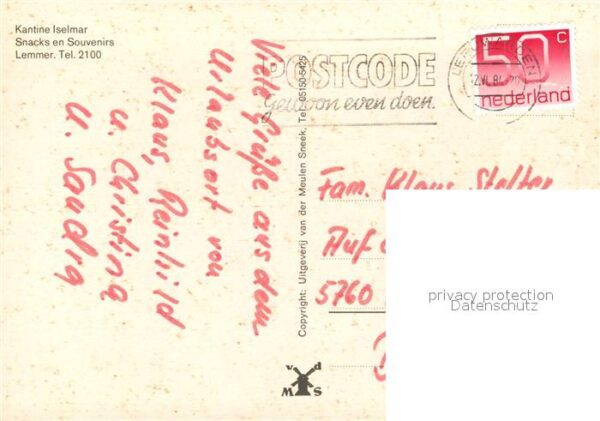 Kantine Iselmar
Snacks en Souvenirs
Lemmer. Tel. 2100
Viele Grüße aus dem
Urlaubsort von
Klaus, Reinhild
u. Christina
u. Sandra
POSTCODE
Gewoon even doen.
LEEUWARDEN
50 c
nederland
Copyright: Uitgeverij van der Meulen Sneek, Tel. 05150-5425
Fam. Klaus Stelter
Auf
5760
v d
M S
privacy protection
Datenschutz